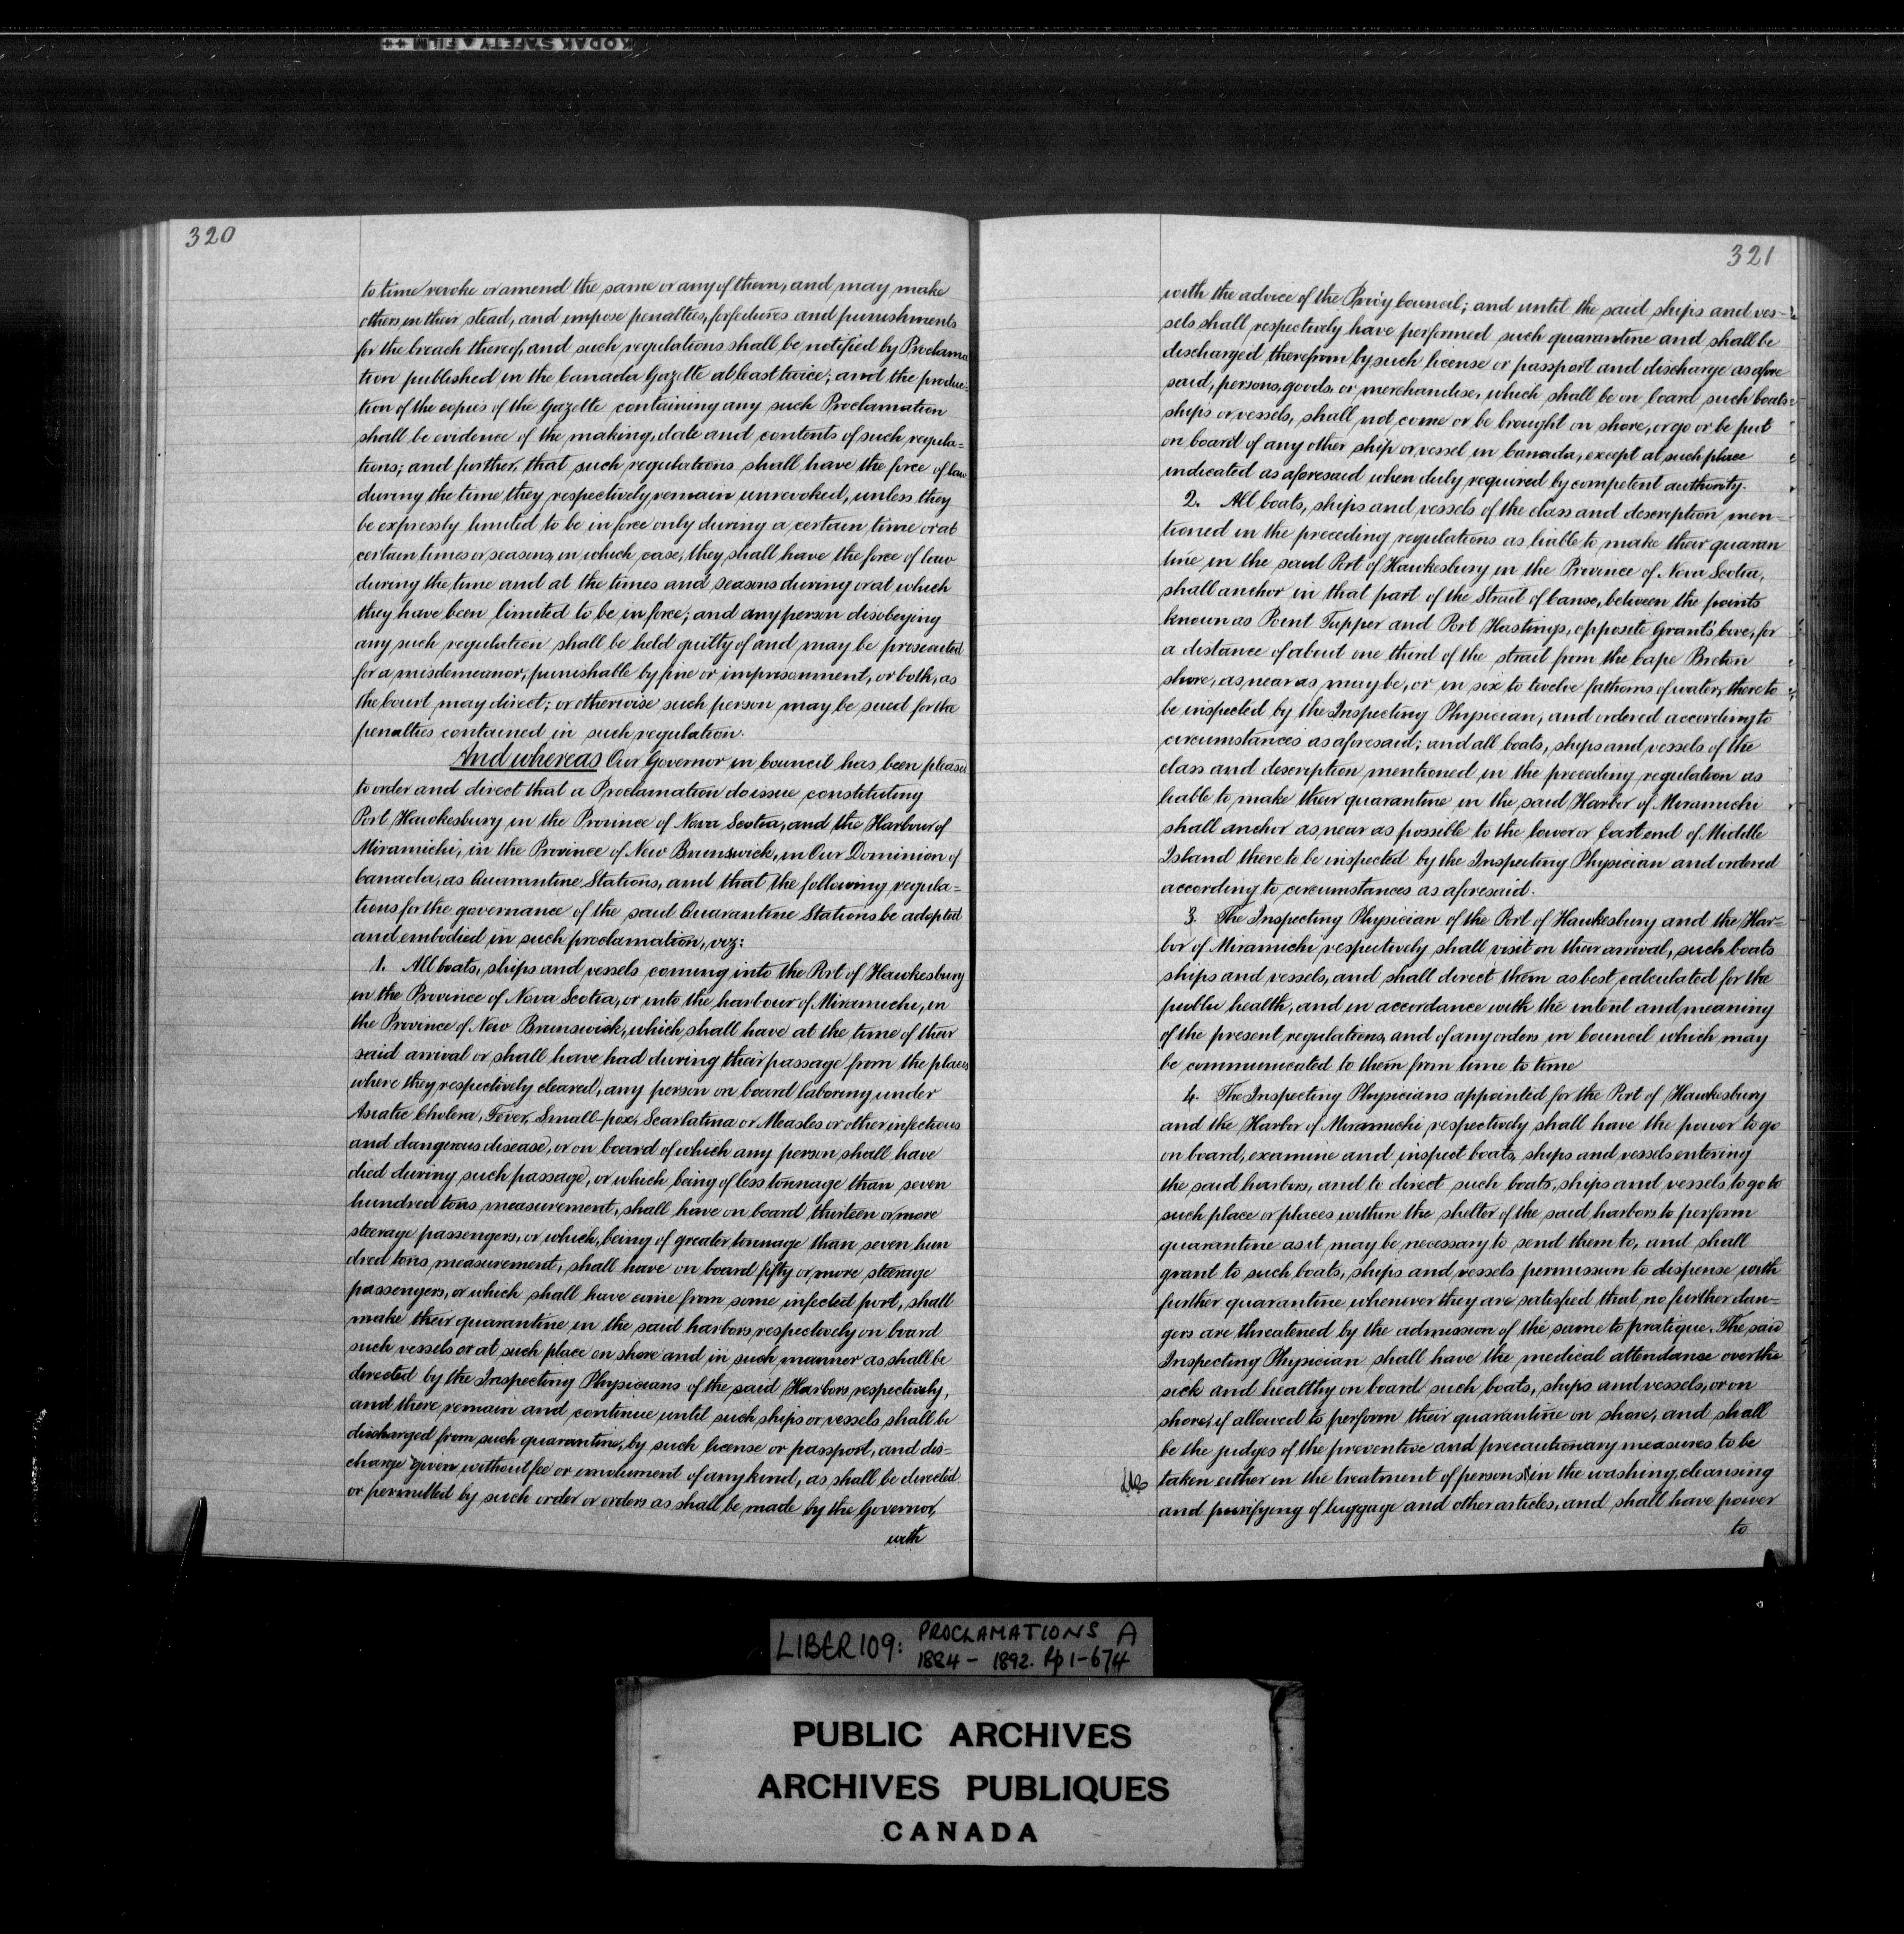 KODAK SAFETY A FILM ++
320
to time revoke or amend the same or any of them, and may make
others in their stead, and impose penalties, forfeitures and punishments
for the breach thereof, and such regulations shall be notified by Proclama
tion published in the Canada Gazette at least twice; and the produc-
tion of the copies of the Gazette containing any such Proclamation
shall be evidence of the making, date and contents of such regula=
tions; and further, that such regulations shall have the force of law
during the time they respectively remain unrevoked, unless they
be expressly limited to be in force only during a certain time or at
certain times or seasons, in which case, they shall have the force of law
during the time and at the times and seasons during or at which
they have been limited to be in force; and any person disobeying
any such regulation shall be held guilty of and may be prosecuted
for a misdemeanor, punishable by fine or imprisonment, or both, as
the Court may direct; or otherwise such person may be sued for the
penalties contained in such regulation.
And whereas Our Governor in Council has been pleased
to order and direct that a Proclamation do issue constituting
Port Hawkesbury in the Province of Nova Scotia, and the Harbour of
Miramichi, in the Province of New Brunswick, in Our Dominion of
Canada, as Quarantine Stations, and that the following regula=
tions for the governance of the said Quarantine Stations be adopted
and embodied in such proclamation, viz:
1. All boats, ships and vessels coming into the Port of Hawkesbury
in the Province of Nova Scotia, or into the harbour of Miramichi, in
the Province of New Brunswick, which shall have at the time of their
said arrival or shall have had during their passage from the places
where they respectively cleared, any person on board laboring under
Asiatic Cholera, Fever, Small-pox, Scarlatina or Measles or other infectious
and dangerous disease, or on board of which any person shall have
died during such passage, or which being of less tonnage than seven
hundred tons measurement, shall have on board thirteen or more
steerage passengers, or which, being of greater tonnage than seven hun
dred tons measurement, shall have on board fifty or more steerage
passengers, or which shall have come from some infected port, shall
make their quarantine in the said harbors respectively on board
such vessels or at such place on shore and in such manner as shall be
directed by the Inspecting Physicians of the said Harbors respectively,
and there remain and continue until such ships or vessels shall be
discharged from such quarantine, by such license or passport, and dis=
charge given without fee or emolument of any kind, as shall be directed
or permitted by such order or orders as shall be made by the Governor,
with
321
with the advice of the Privy Council; and until the said ships and ves-
sels shall respectively have performed such quarantine and shall be
discharged therefrom by such license or passport and discharge as afore
said, persons, goods, or merchandise, which shall be on board such boats
ships or vessels, shall not come or be brought on shore, or go or be put
on board of any other ship or vessel in Canada, except at such place
indicated as aforesaid when duly required by competent authority.
2. All boats, ships and vessels of the class and description men-
tioned in the preceding regulations as liable to make their quaran
tine in the said Port of Hawkesbury in the Province of Nova Scotia,
shall anchor in that part of the Strait of Canso, between the points
known as Point Tupper and Port Hastings, opposite Grant's Cove, for
a distance of about one third of the strait from the Cape Breton
shore, as near as may be, or in six to twelve fathoms of water, there to
be inspected by the Inspecting Physician, and ordered according to
circumstances as aforesaid; and all boats, ships and vessels of the
class and description mentioned in the preceding regulation as
liable to make their quarantine in the said Harbor of Miramichi
shall anchor as near as possible to the lower or East end of Middle
Island there to be inspected by the Inspecting Physician and ordered
according to circumstances as aforesaid.
3. The Inspecting Physician of the Port of Hawkesbury and the Har=
bor of Miramichi respectively shall visit on their arrival, such boats
ships and vessels, and shall direct them as best calculated for the
public health, and in accordance with the intent and meaning
of the present regulations, and of any orders in Council which may
be communicated to them from time to time
4. The Inspecting Physicians appointed for the Port of Hawkesbury
and the Harbor of Miramichi respectively shall have the power to go
on board, examine and inspect boats, ships and vessels entering
the said harbors, and to direct such boats, ships and vessels to go to
such place or places within the shelter of the said harbors to perform
quarantine as it may be necessary to send them to, and shall
grant to such boats, ships and vessels permission to dispense with
further quarantine whenever they are satisfied that no further dan=
gers are threatened by the admission of the same to pratique. The said
Inspecting Physician shall have the medical attendance over the
sick and healthy on board such boats, ships and vessels, or on
shore, if allowed to perform their quarantine on shore, and shall
be the judges of the preventive and precautionary measures to be
taken either in the treatment of persons in the washing, cleansing
and purifying of luggage and other articles, and shall have power
to
LIBER 109: PROCLAMATIONS A
1884 - 1892. Pp 1-674
PUBLIC ARCHIVES
ARCHIVES PUBLIQUES
CANADA